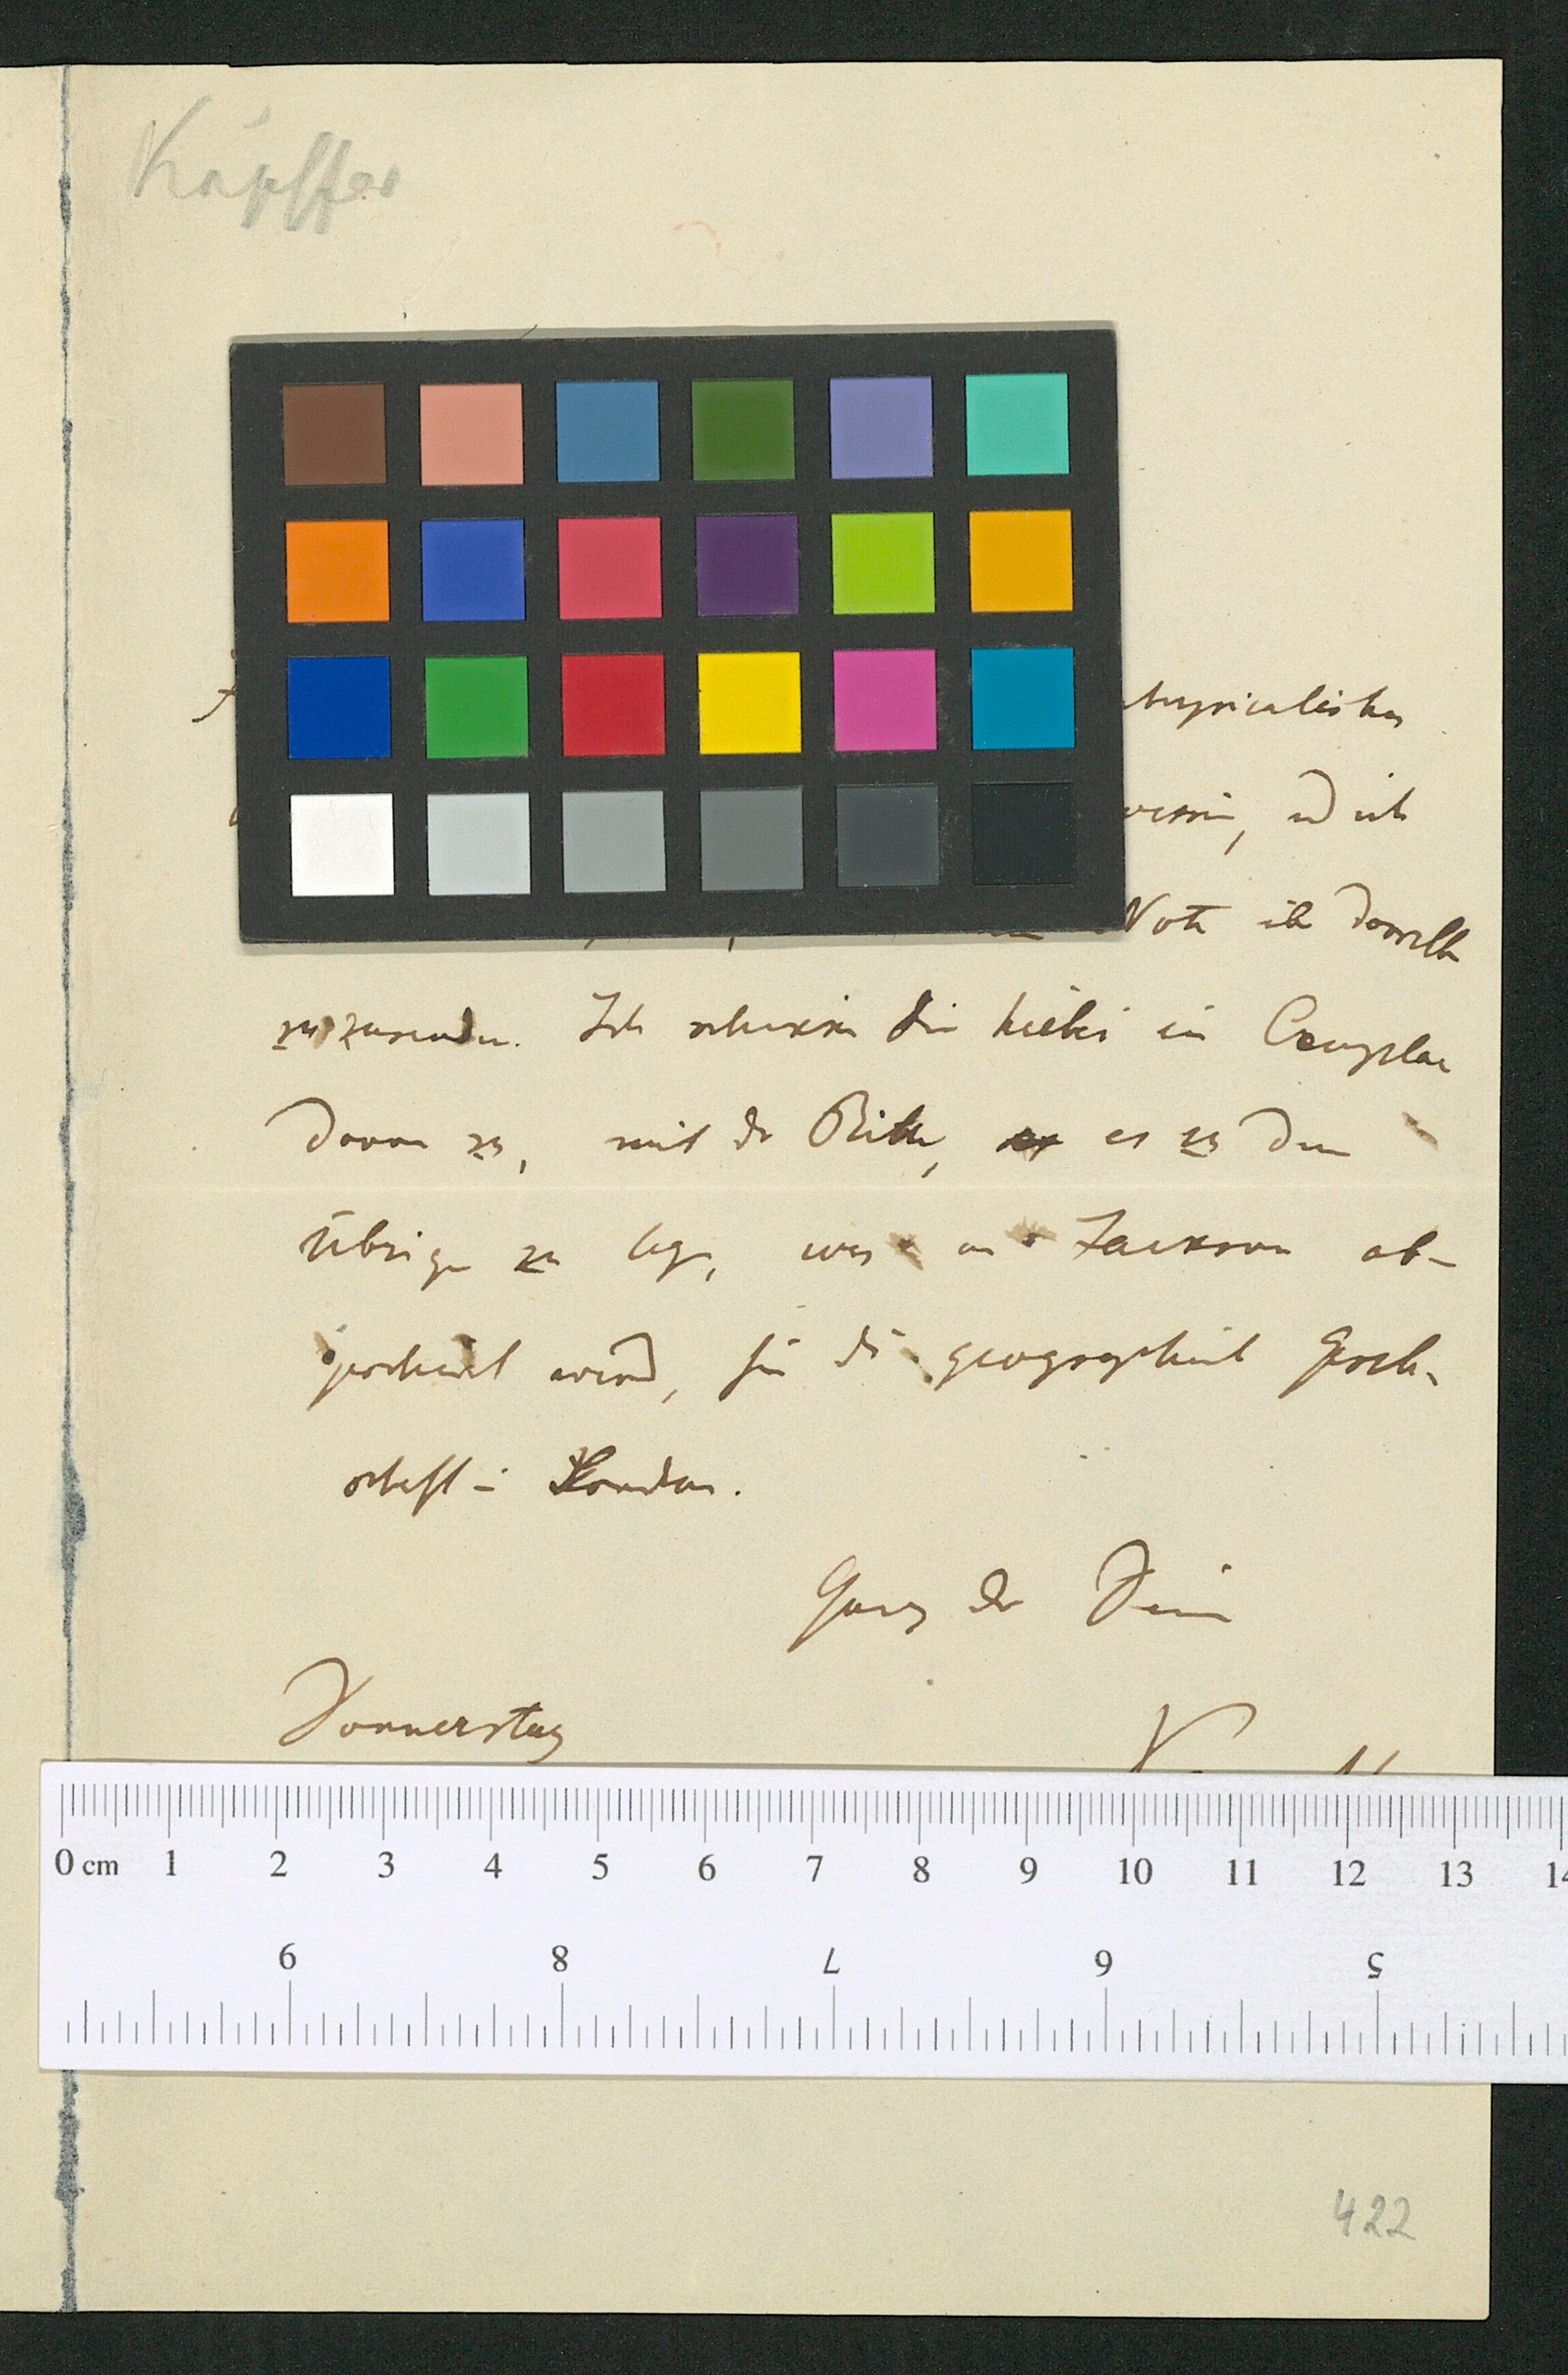 Käpffer
physicalischen
wesen, und ich
Note über denselben
zuzusenden. Ich schicke Dir hiebei ein Exemplar
davon zu, mit der Bitte, es zu dem
Übrigen zu legen, was an Jackson ab-
geschickt wird, für die geographische Gesell-
schaft in London.
Ganz der Deine
Donnerstag
0 cm 1 2 3 4 5 6 7 8 9 10 11 12 13 14
9 8 7 6 5
422